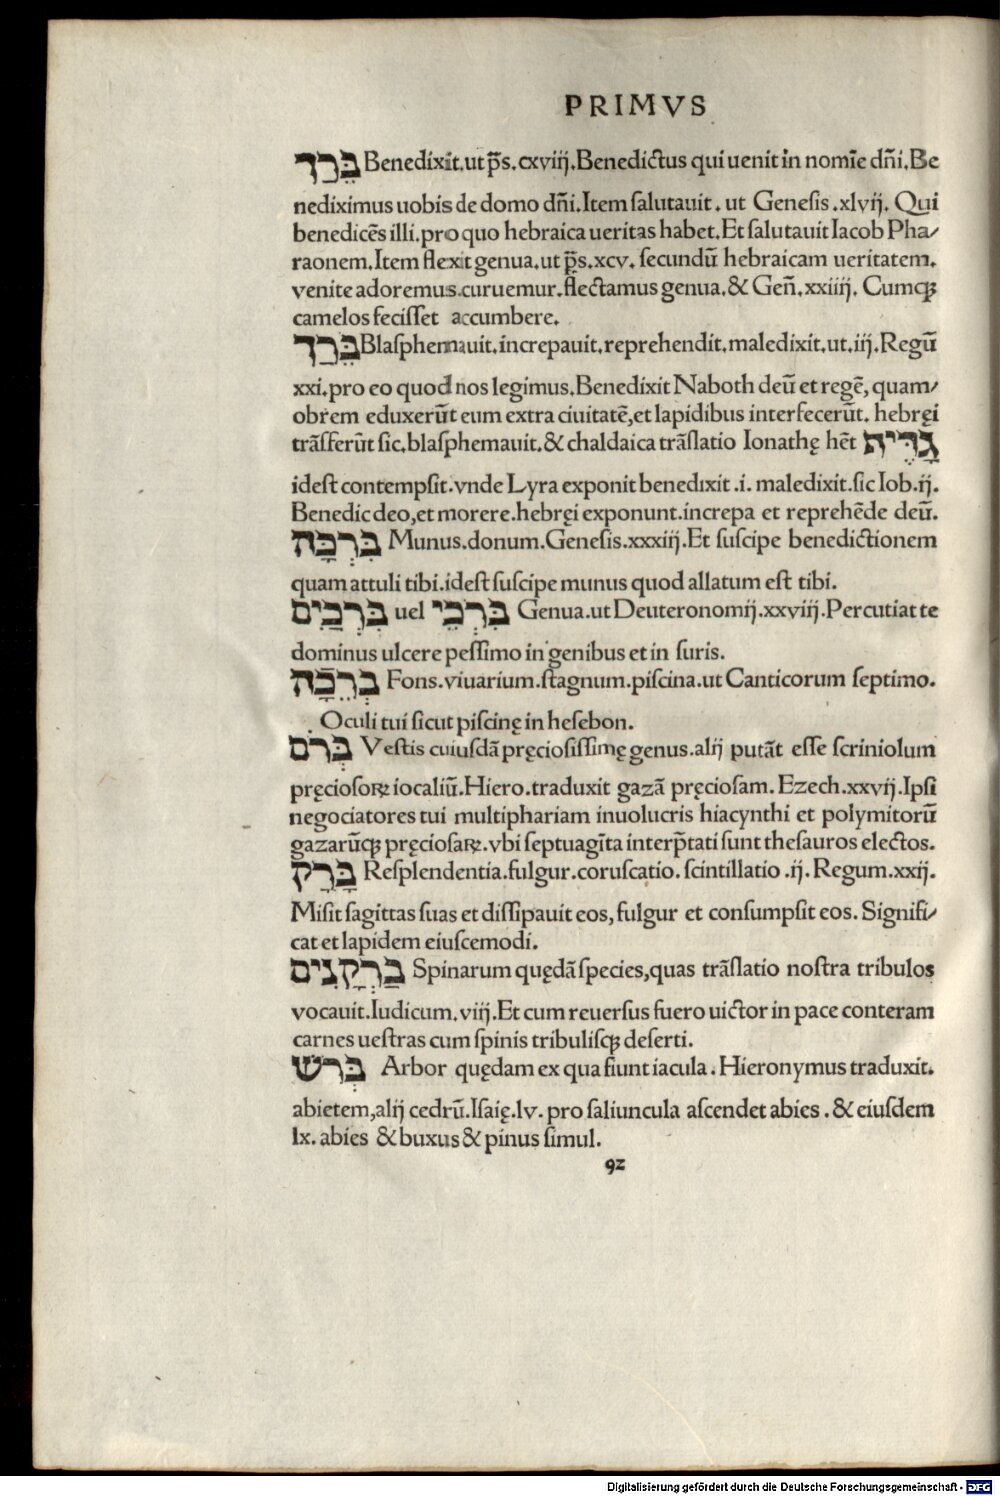 PRIMVS
בֵּרַךְ Benedixit.ut p̄s.cxviij.Benedictus qui uenit in nomīe dn̄i.Be
nediximus uobis de domo dn̄i.Item ſalutauit. ut Geneſis.xlvij. Qui
benedicēs illi.pro quo hebraica ueritas habet.Et ſalutauit Iacob Pha/
raonem.Item flexit genua.ut p̄s.xcv. ſecundū hebraicam ueritatem.
venite adoremus.curuemur.flectamus genua.& Gen̄.xxiiij. Cumqꝫ
camelos feciſſet accumbere.
בֵּרַךְ Blaſphemauit.increpauit.reprehendit.maledixit.ut.iij.Regū
xxi.pro eo quod nos legimus.Benedixit Naboth deū et regē, quam/
obrem eduxerūt eum extra ciuitatē,et lapidibus interfecerūt. hebręi
trāſferūt ſic.blaſphemauit.& chaldaica trāſlatio Ionathę hēt גָּדֶּיה
ideſt contempſit.vnde Lyra exponit benedixit .i. maledixit.ſic Iob.ij.
Benedic deo,et morere.hebręi exponunt.increpa et reprehēde deū.
בִּרְכָּה Munus.donum.Geneſis.xxxiij.Et ſuſcipe benedictionem
quam attuli tibi.ideſt ſuſcipe munus quod allatum eſt tibi.
בִּרְכַּיִם uel בִּרְכֵּי Genua.ut Deuteronomij.xxviij.Percutiat te
dominus ulcere peſſimo in genibus et in ſuris.
בְרֵכָּה Fons.viuarium.ſtagnum.piſcina.ut Canticorum ſeptimo.
Oculi tui ſicut piſcinę in heſebon.
בְּרֹם Veſtis cuiuſdā pręcioſiſſimę genus.alij putāt eſſe ſcriniolum
pręcioſoꝝ iocaliū.Hiero.traduxit gazā pręcioſam. Ezech.xxvij.Ipſi
negociatores tui multiphariam inuolucris hiacynthi et polymitorū
gazarūqꝫ pręcioſaꝝ.vbi ſeptuagīta interp̄tati ſunt theſauros electos.
בָּרָק Reſplendentia.fulgur.coruſcatio. ſcintillatio .ij. Regum.xxij.
Miſit ſagittas ſuas et diſſipauit eos, fulgur et conſumpſit eos. Signifi/
cat et lapidem eiuſcemodi.
בַרְקָנִים Spinarum quędā ſpecies,quas trāſlatio noſtra tribulos
vocauit.Iudicum.viij.Et cum reuerſus fuero uictor in pace conteram
carnes ueſtras cum ſpinis tribuliſqꝫ deſerti.
בְּרֹשׁ Arbor quędam ex qua fiunt iacula.Hieronymus traduxit.
abietem,alij cedrū.Iſaię.lv. pro ſaliuncula aſcendet abies . & eiuſdem
lx. abies & buxus & pinus ſimul.
92
Digitalisierung gefördert durch die Deutsche Forschungsgemeinschaft - DFG